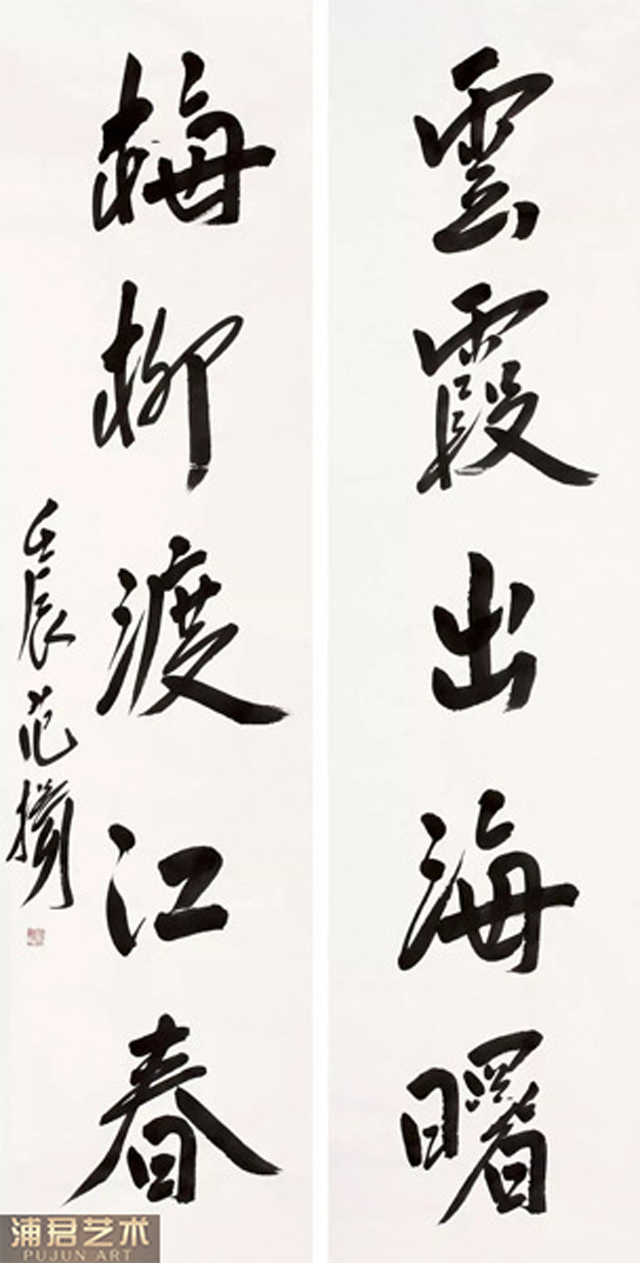 雲霞出海曙
梅柳渡江春
壬辰范扬
浦君艺术
PUJUN ART